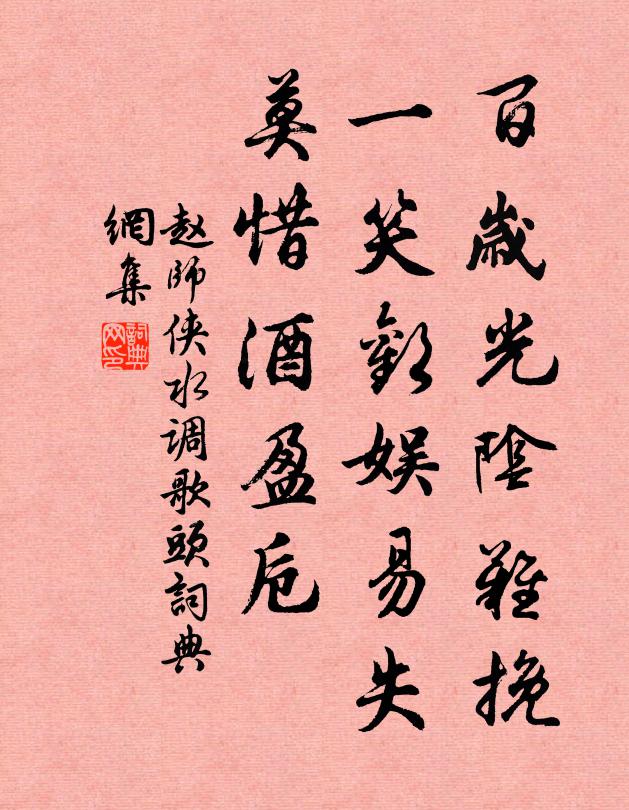 百歲光陰難挽
一笑歡娱易失
莫惜酒盈卮
赵師侠水调歌頭詞典
網集
詞典網印